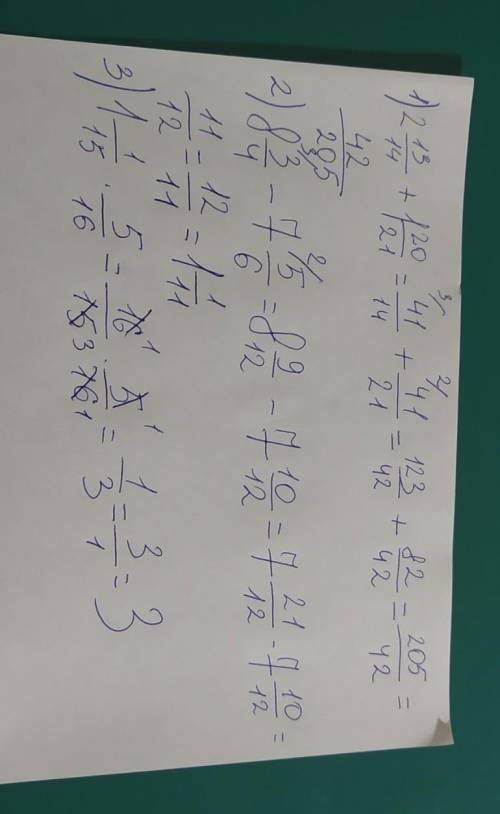 1) 2 13/14 + 1 20/21 = 41/14 3/ + 41/21 2/ = 123/42 + 82/42 = 205/42 =
42/205
2) 8 3/4 3/ - 7 5/6 2/ = 8 9/12 - 7 10/12 = 7 21/12 - 7 10/12 =
11/12 = 12/11 = 1 1/11
3) 1 1/15 · 5/16 = 16 1/15 3 · 5 1/16 1 = 1/3 = 3/1 = 3